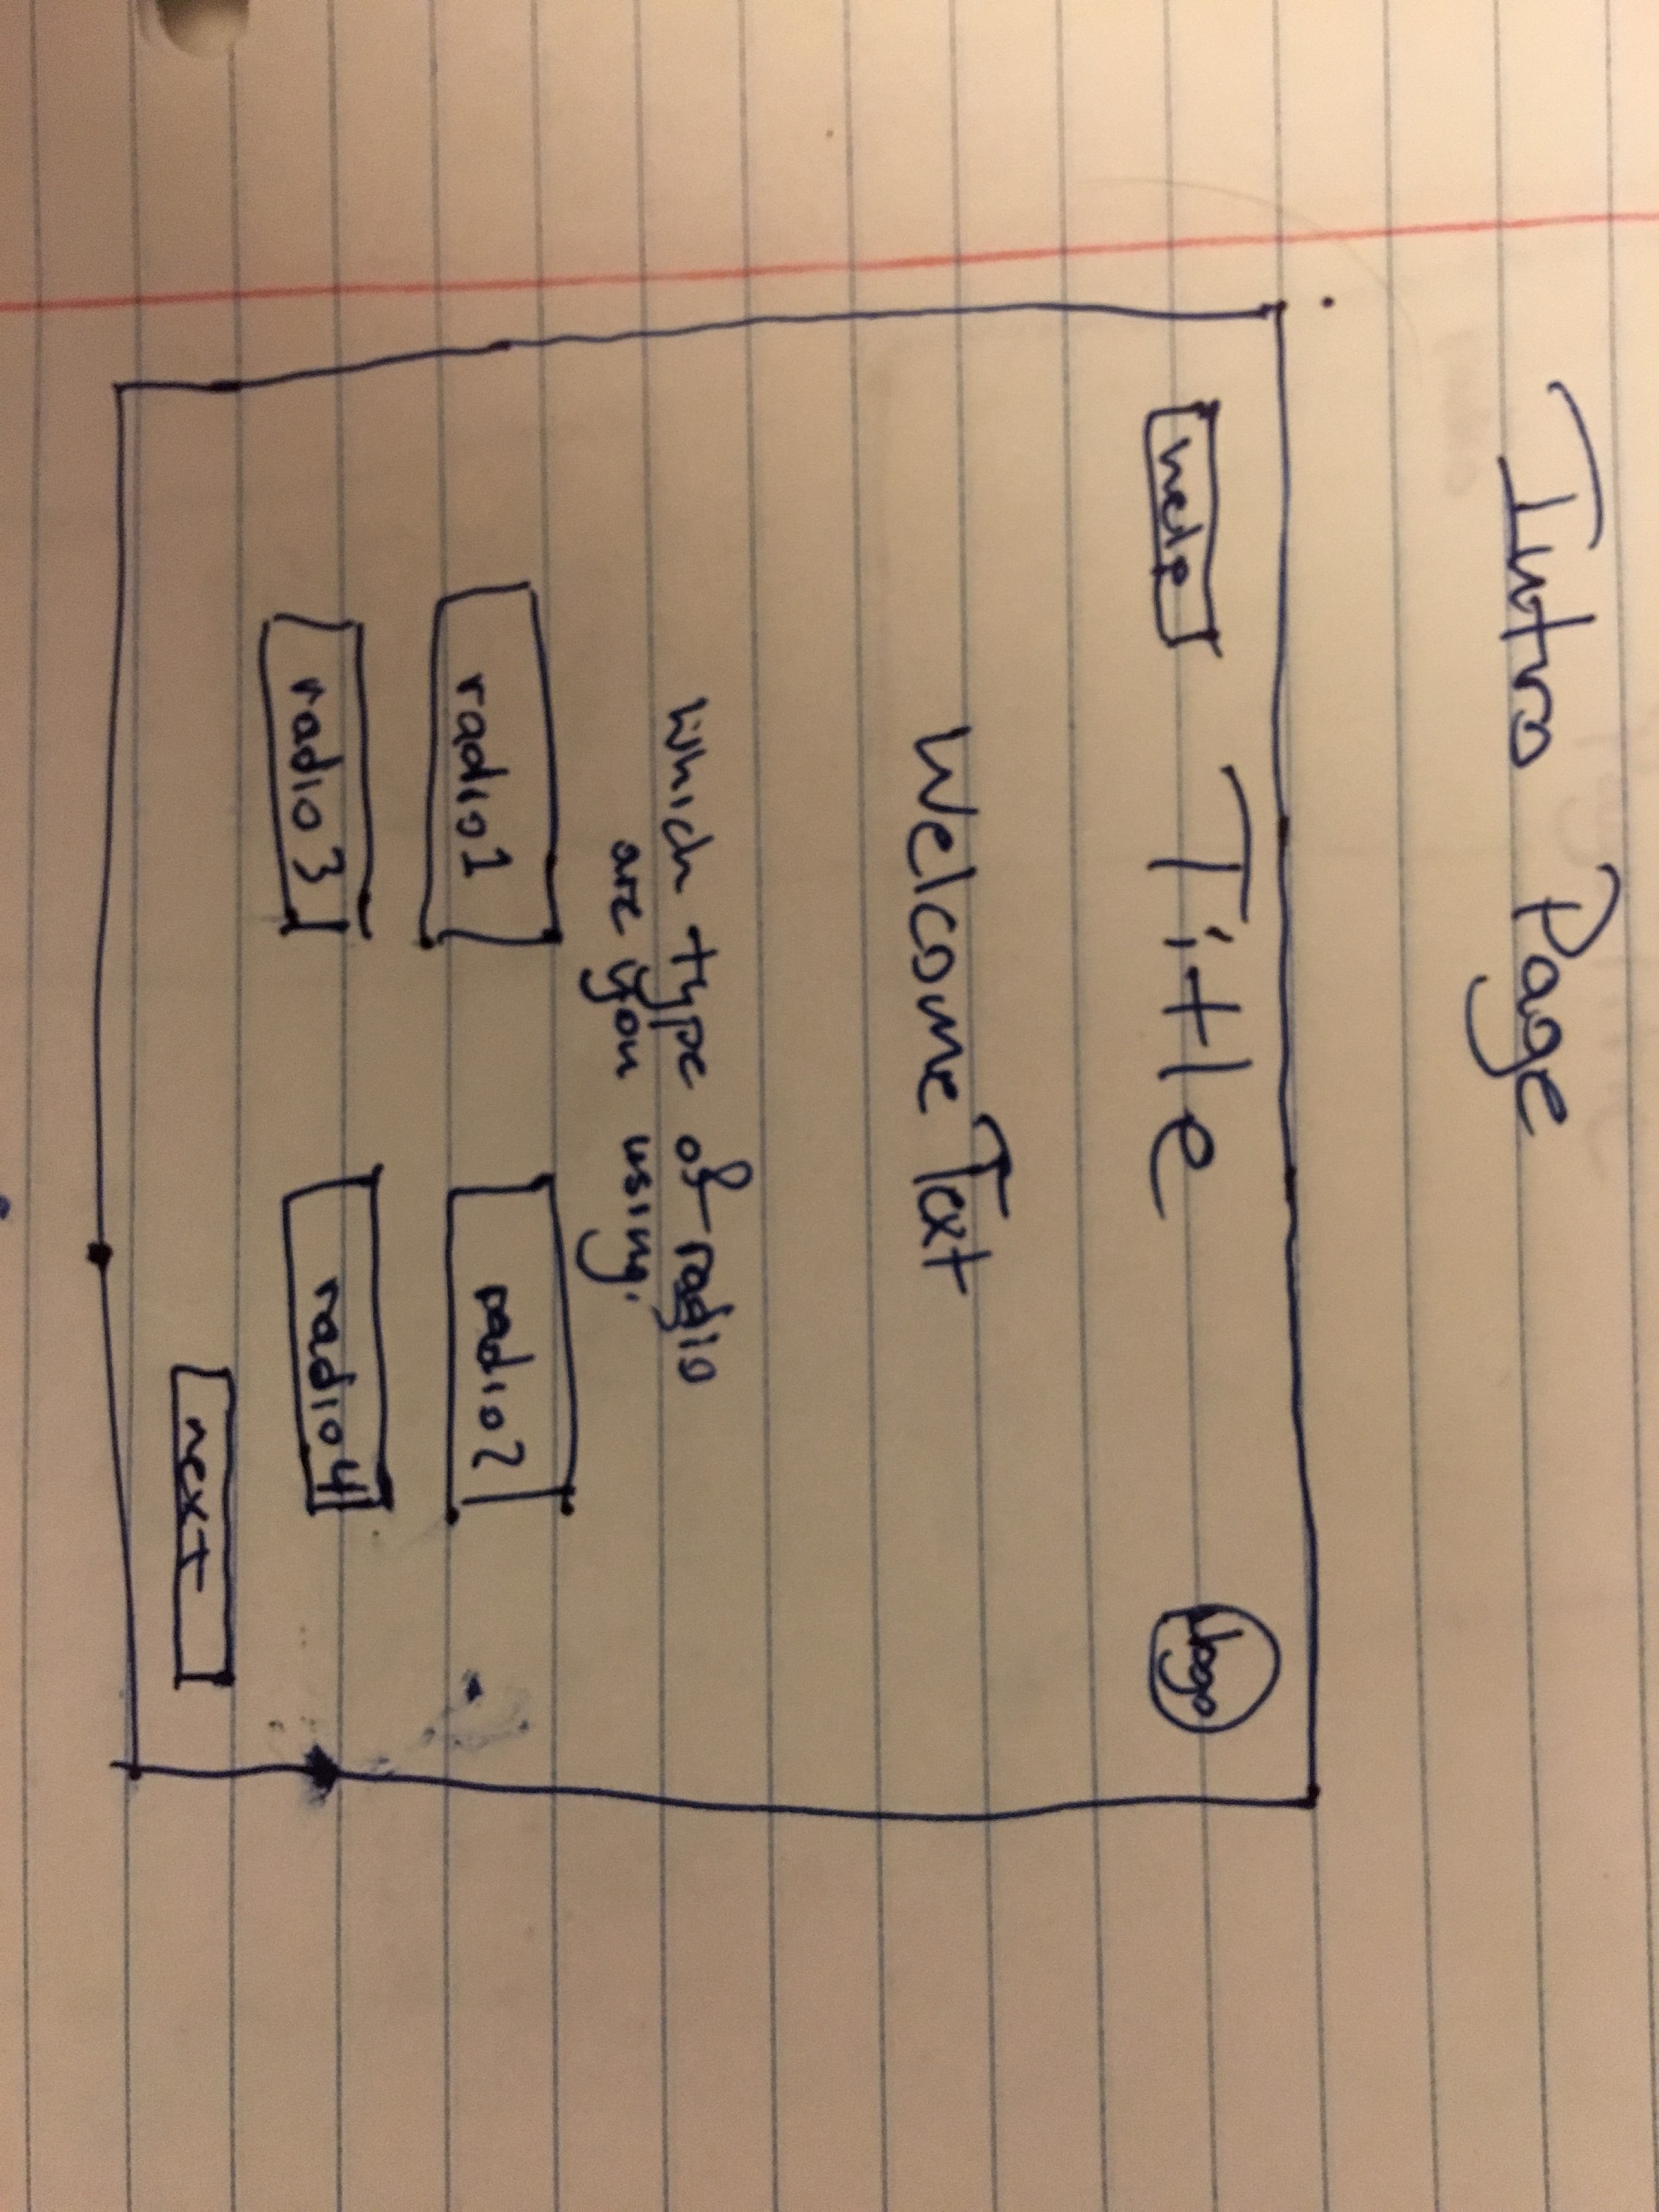 Intro Page
help Title logo
Welcome Text
Which type of radio
are you using.
radio 1 radio 2
radio 3 radio 4
next